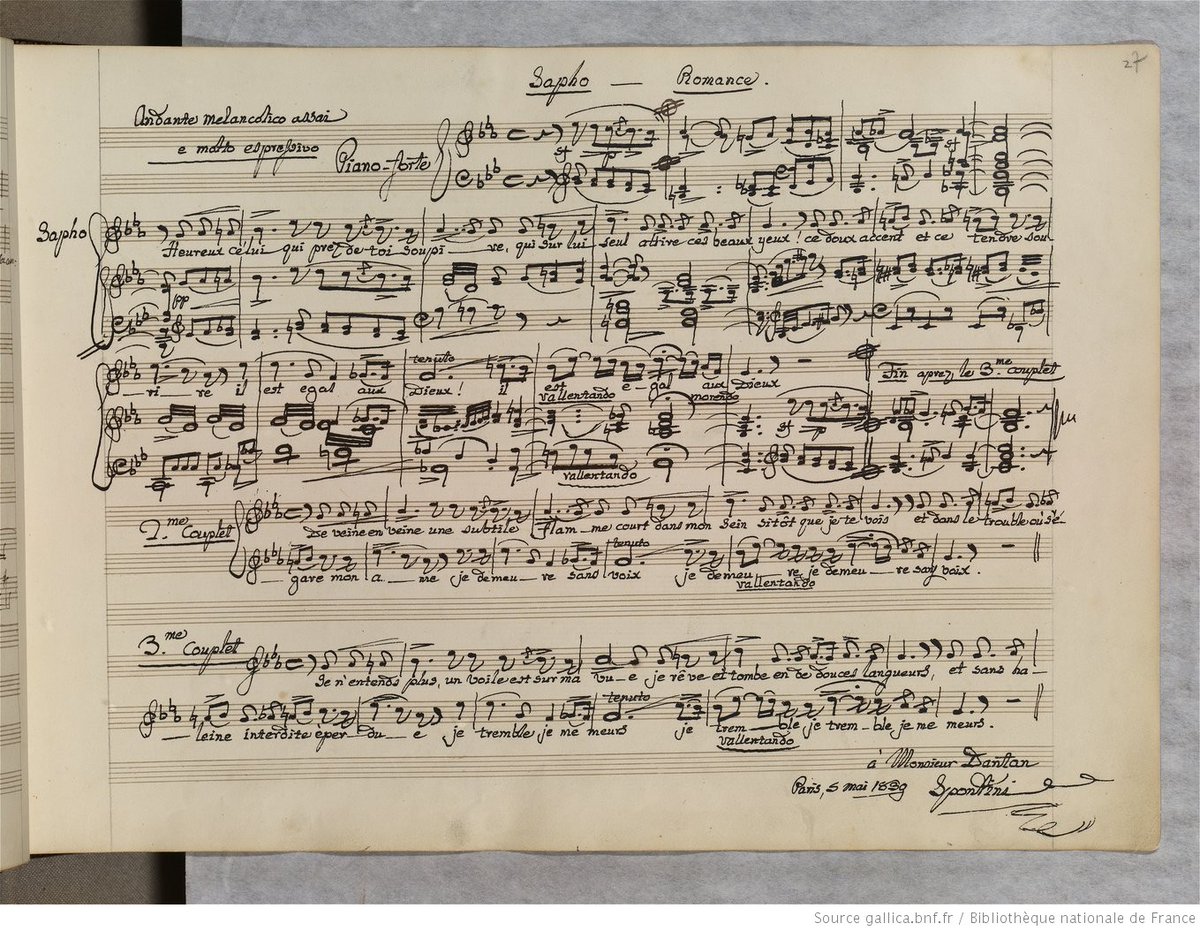 27
Sapho — Romance.
Andante melancolico assai
e molto espressivo
Piano-forte
Sapho
Heureux celui qui prez de toi soupi re, qui sur lui seul attire ces beaux yeux! ce doux accent et ce tendre sou
pp
tenuto
— ri — re il est egal aux Dieux! il est e gal aux Dieux
rallentando morendo
Fin aprez le 3.me couplet
rallentando
2.me Couplet
De veine en veine une subtile flam — me court dans mon sein sitôt que je te vois et dans le trouble où s'é-
tenuto
— gare mon a — me je demeu — re sans voix je demeu — re je demeu — re sans voix.
rallentando
3.me Couplet
Je n'entends plus, un voile est sur ma vu — e je rêve et tombe en de douces langueurs, et sans ha-
tenuto
— leine interdite eper — du — e je tremble je me meurs je trem — ble je trem — ble je me meurs.
rallentando
à Monsieur Dantan
Paris, 5 mai 1839 Spontini
Source gallica.bnf.fr / Bibliothèque nationale de France